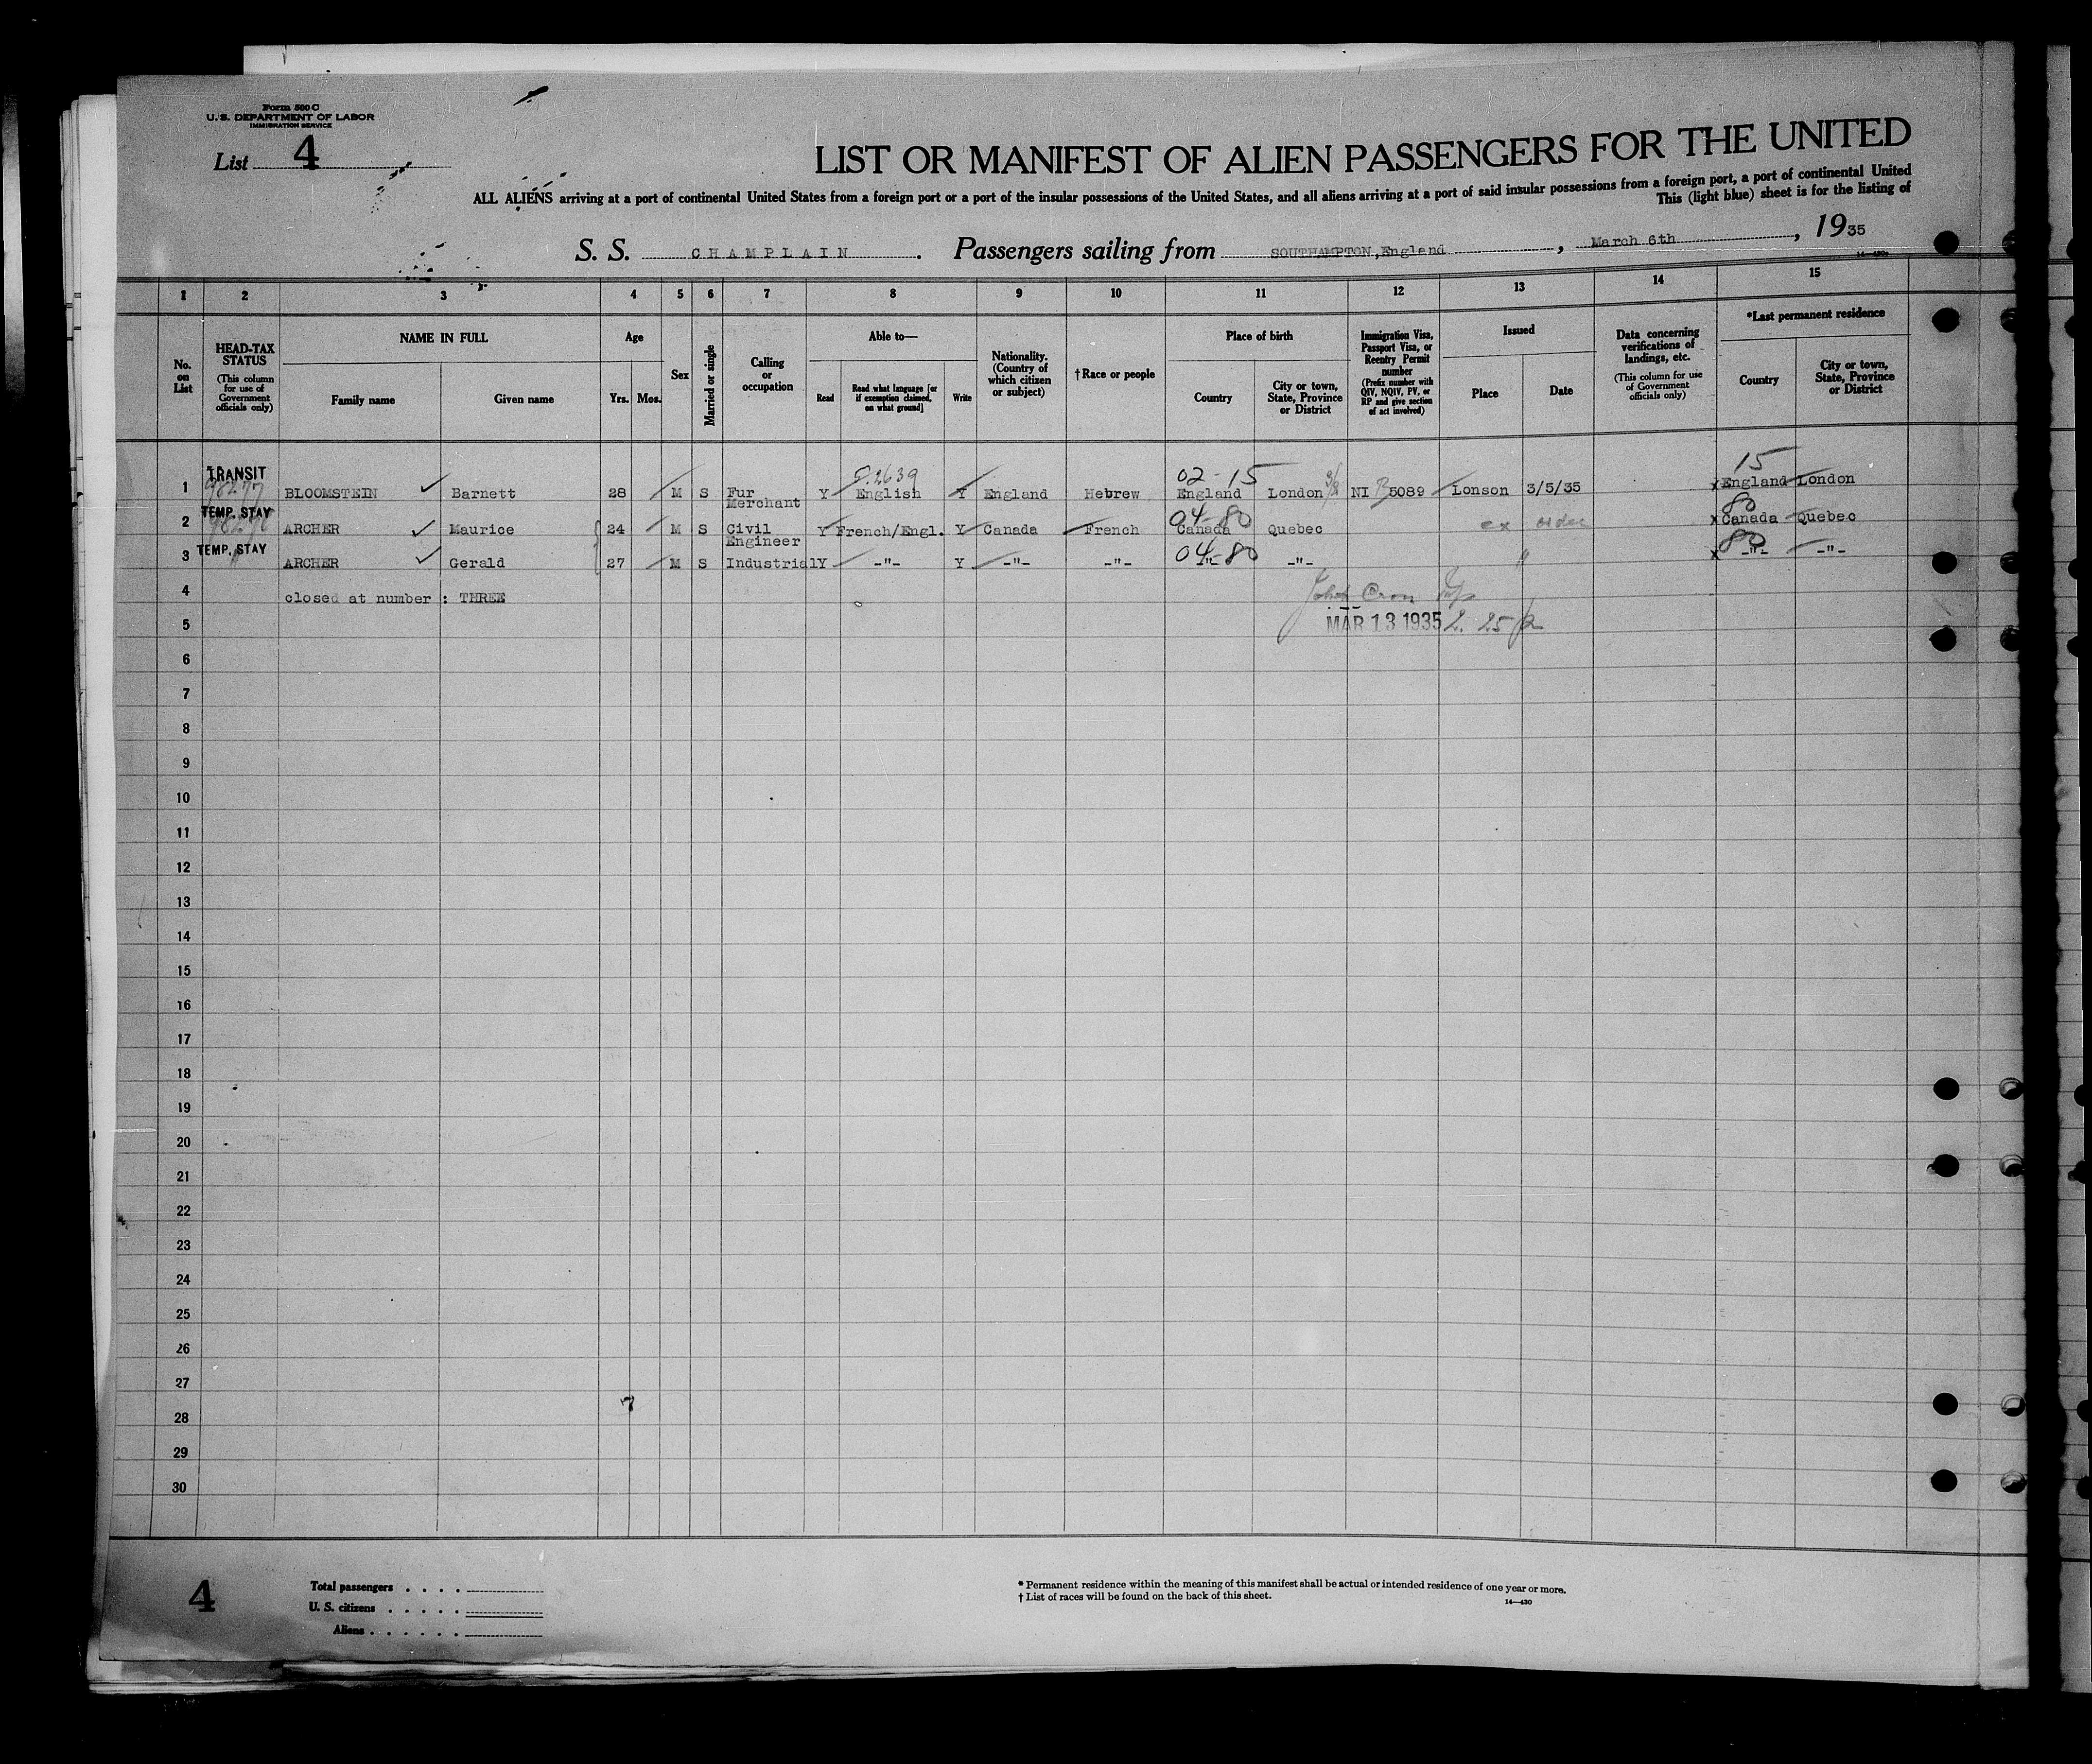 Form 500 C
U. S. DEPARTMENT OF LABOR
IMMIGRATION SERVICE
List 4
LIST OR MANIFEST OF ALIEN PASSENGERS FOR THE UNITED
ALL ALIENS arriving at a port of continental United States from a foreign port or a port of the insular possessions of the United States, and all aliens arriving at a port of said insular possessions from a foreign port, a port of continental United
This (light blue) sheet is for the listing of
S. S. CHAMPLAIN. Passengers sailing from SOUTHAMPTON, England, March 6th, 1935
14—430
1 2 3 4 5 6 7 8 9 10 11 12 13 14 15
No. on List
HEAD-TAX STATUS (This column for use of Government officials only)
NAME IN FULL
Family name
Given name
Age
Yrs.
Mos.
Sex
Married or single
Calling or occupation
Able to—
Read
Read what language [or if exemption claimed, on what ground]
Write
Nationality. (Country of which citizen or subject)
† Race or people
Place of birth
Country
City or town, State, Province or District
Immigration Visa, Passport Visa, or Reentry Permit number (Prefix number with QIV, NQIV, PV, or RP and give section of act involved)
Issued
Place
Date
Data concerning verifications of landings, etc. (This column for use of Government officials only)
*Last permanent residence
Country
City or town, State, Province or District
2639 02-15 15
1 TRANSIT BLOOMSTEIN Barnett 28 M S Fur Merchant Y English Y England Hebrew England London NI 5089 Lonson 3/5/35 x England London
04-80 80
2 TEMP. STAY ARCHER Maurice 24 M S Civil Engineer Y French/Engl. Y Canada French Canada Quebec ex order x Canada Quebec
04-80 80
3 TEMP. STAY ARCHER Gerald 27 M S Industrial Y -"- Y -"- -"- -"- -"- " x -"- -"-
4 closed at number : THREE
5 MAR 13 1935 2. 25
6
7
8
9
10
11
12
13
14
15
16
17
18
19
20
21
22
23
24
25
26
27
28
29
30
4
Total passengers . . . .
U. S. citizens . . . . .
Aliens . . . . . .
* Permanent residence within the meaning of this manifest shall be actual or intended residence of one year or more.
† List of races will be found on the back of this sheet.
14—430